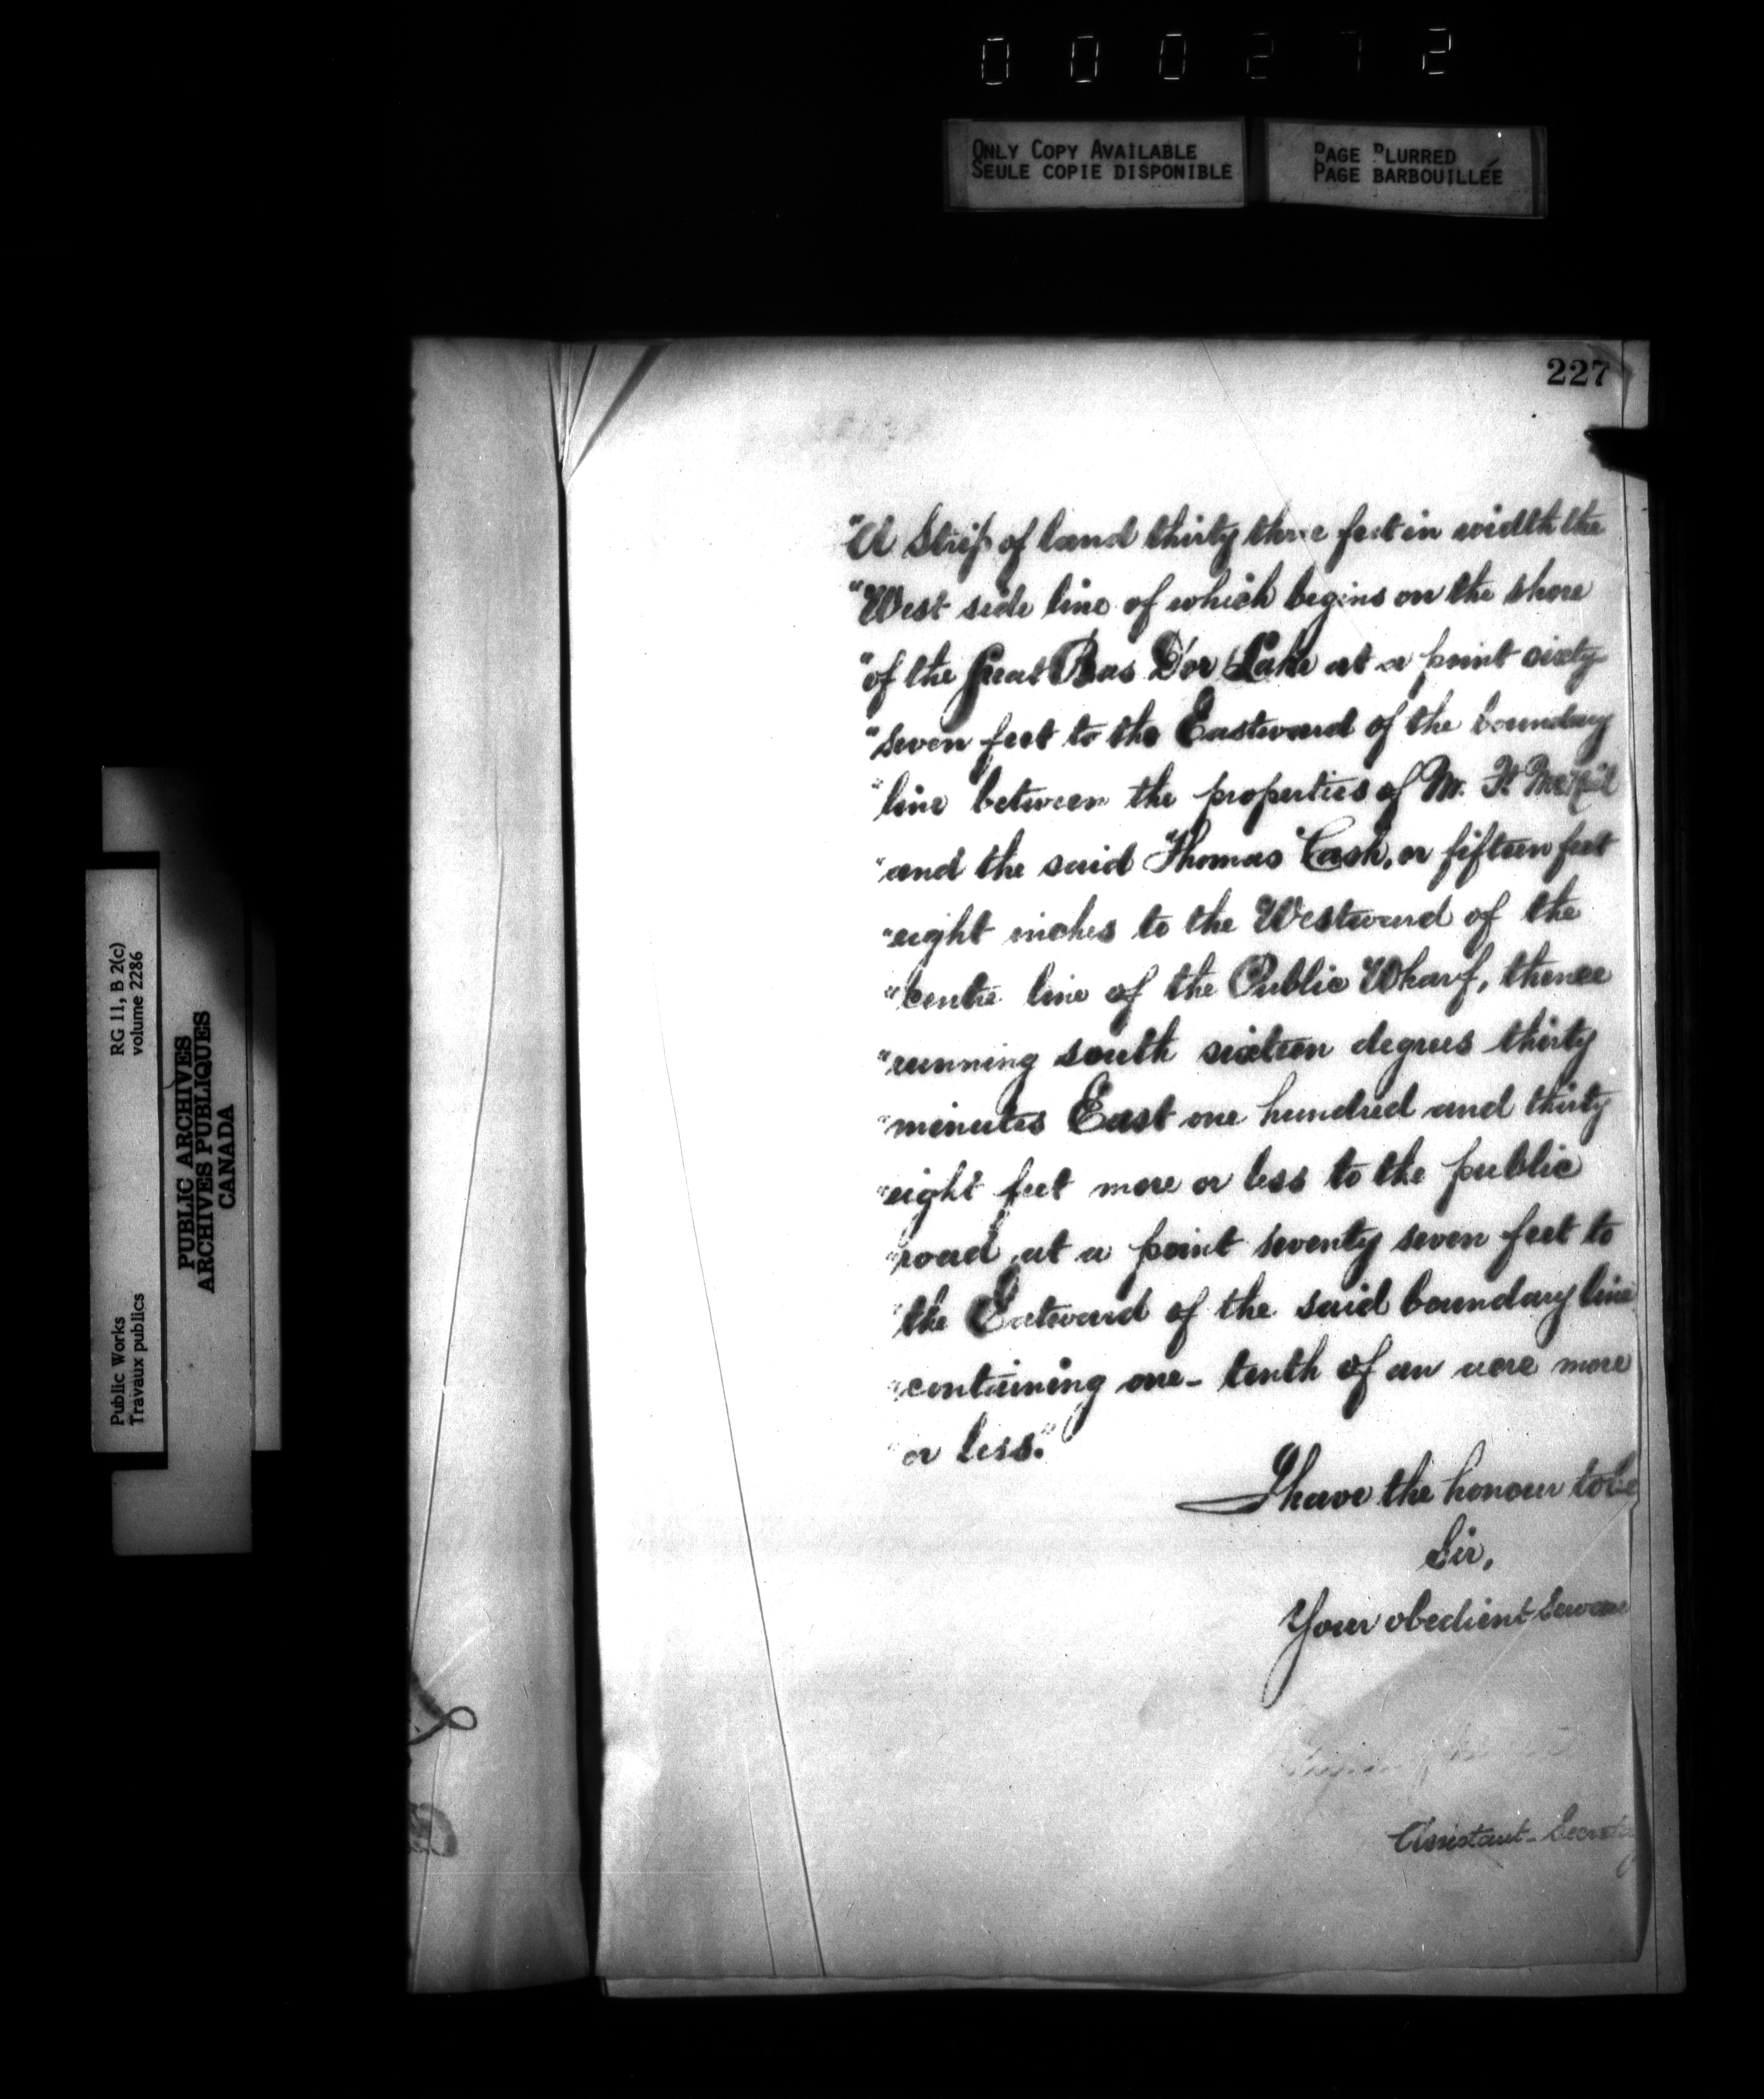 000272
ONLY COPY AVAILABLE
SEULE COPIE DISPONIBLE
PAGE BLURRED
PAGE BARBOUILLÉE
227
"A Strip of land thirty three feet in width the
"West side line of which begins on the shore
"of the Great Bras D'or Lake at a point sixty
"seven feet to the Eastward of the boundary
"line between the properties of M. H. McNeil
"and the said Thomas Cash, or fifteen feet
"eight inches to the Westward of the
"centre line of the Public Wharf, thence
"running south sixteen degrees thirty
"minutes East one hundred and thirty
"eight feet more or less to the public
"road at a point seventy seven feet to
"the Eatward of the said boundary line
"containing one-tenth of an acre more
"or less."
I have the honour to be
Sir,
Your obedient Servant
Assistant-Secretary
RG 11, B 2(c)
volume 2286
Public Works
Travaux publics
PUBLIC ARCHIVES
ARCHIVES PUBLIQUES
CANADA